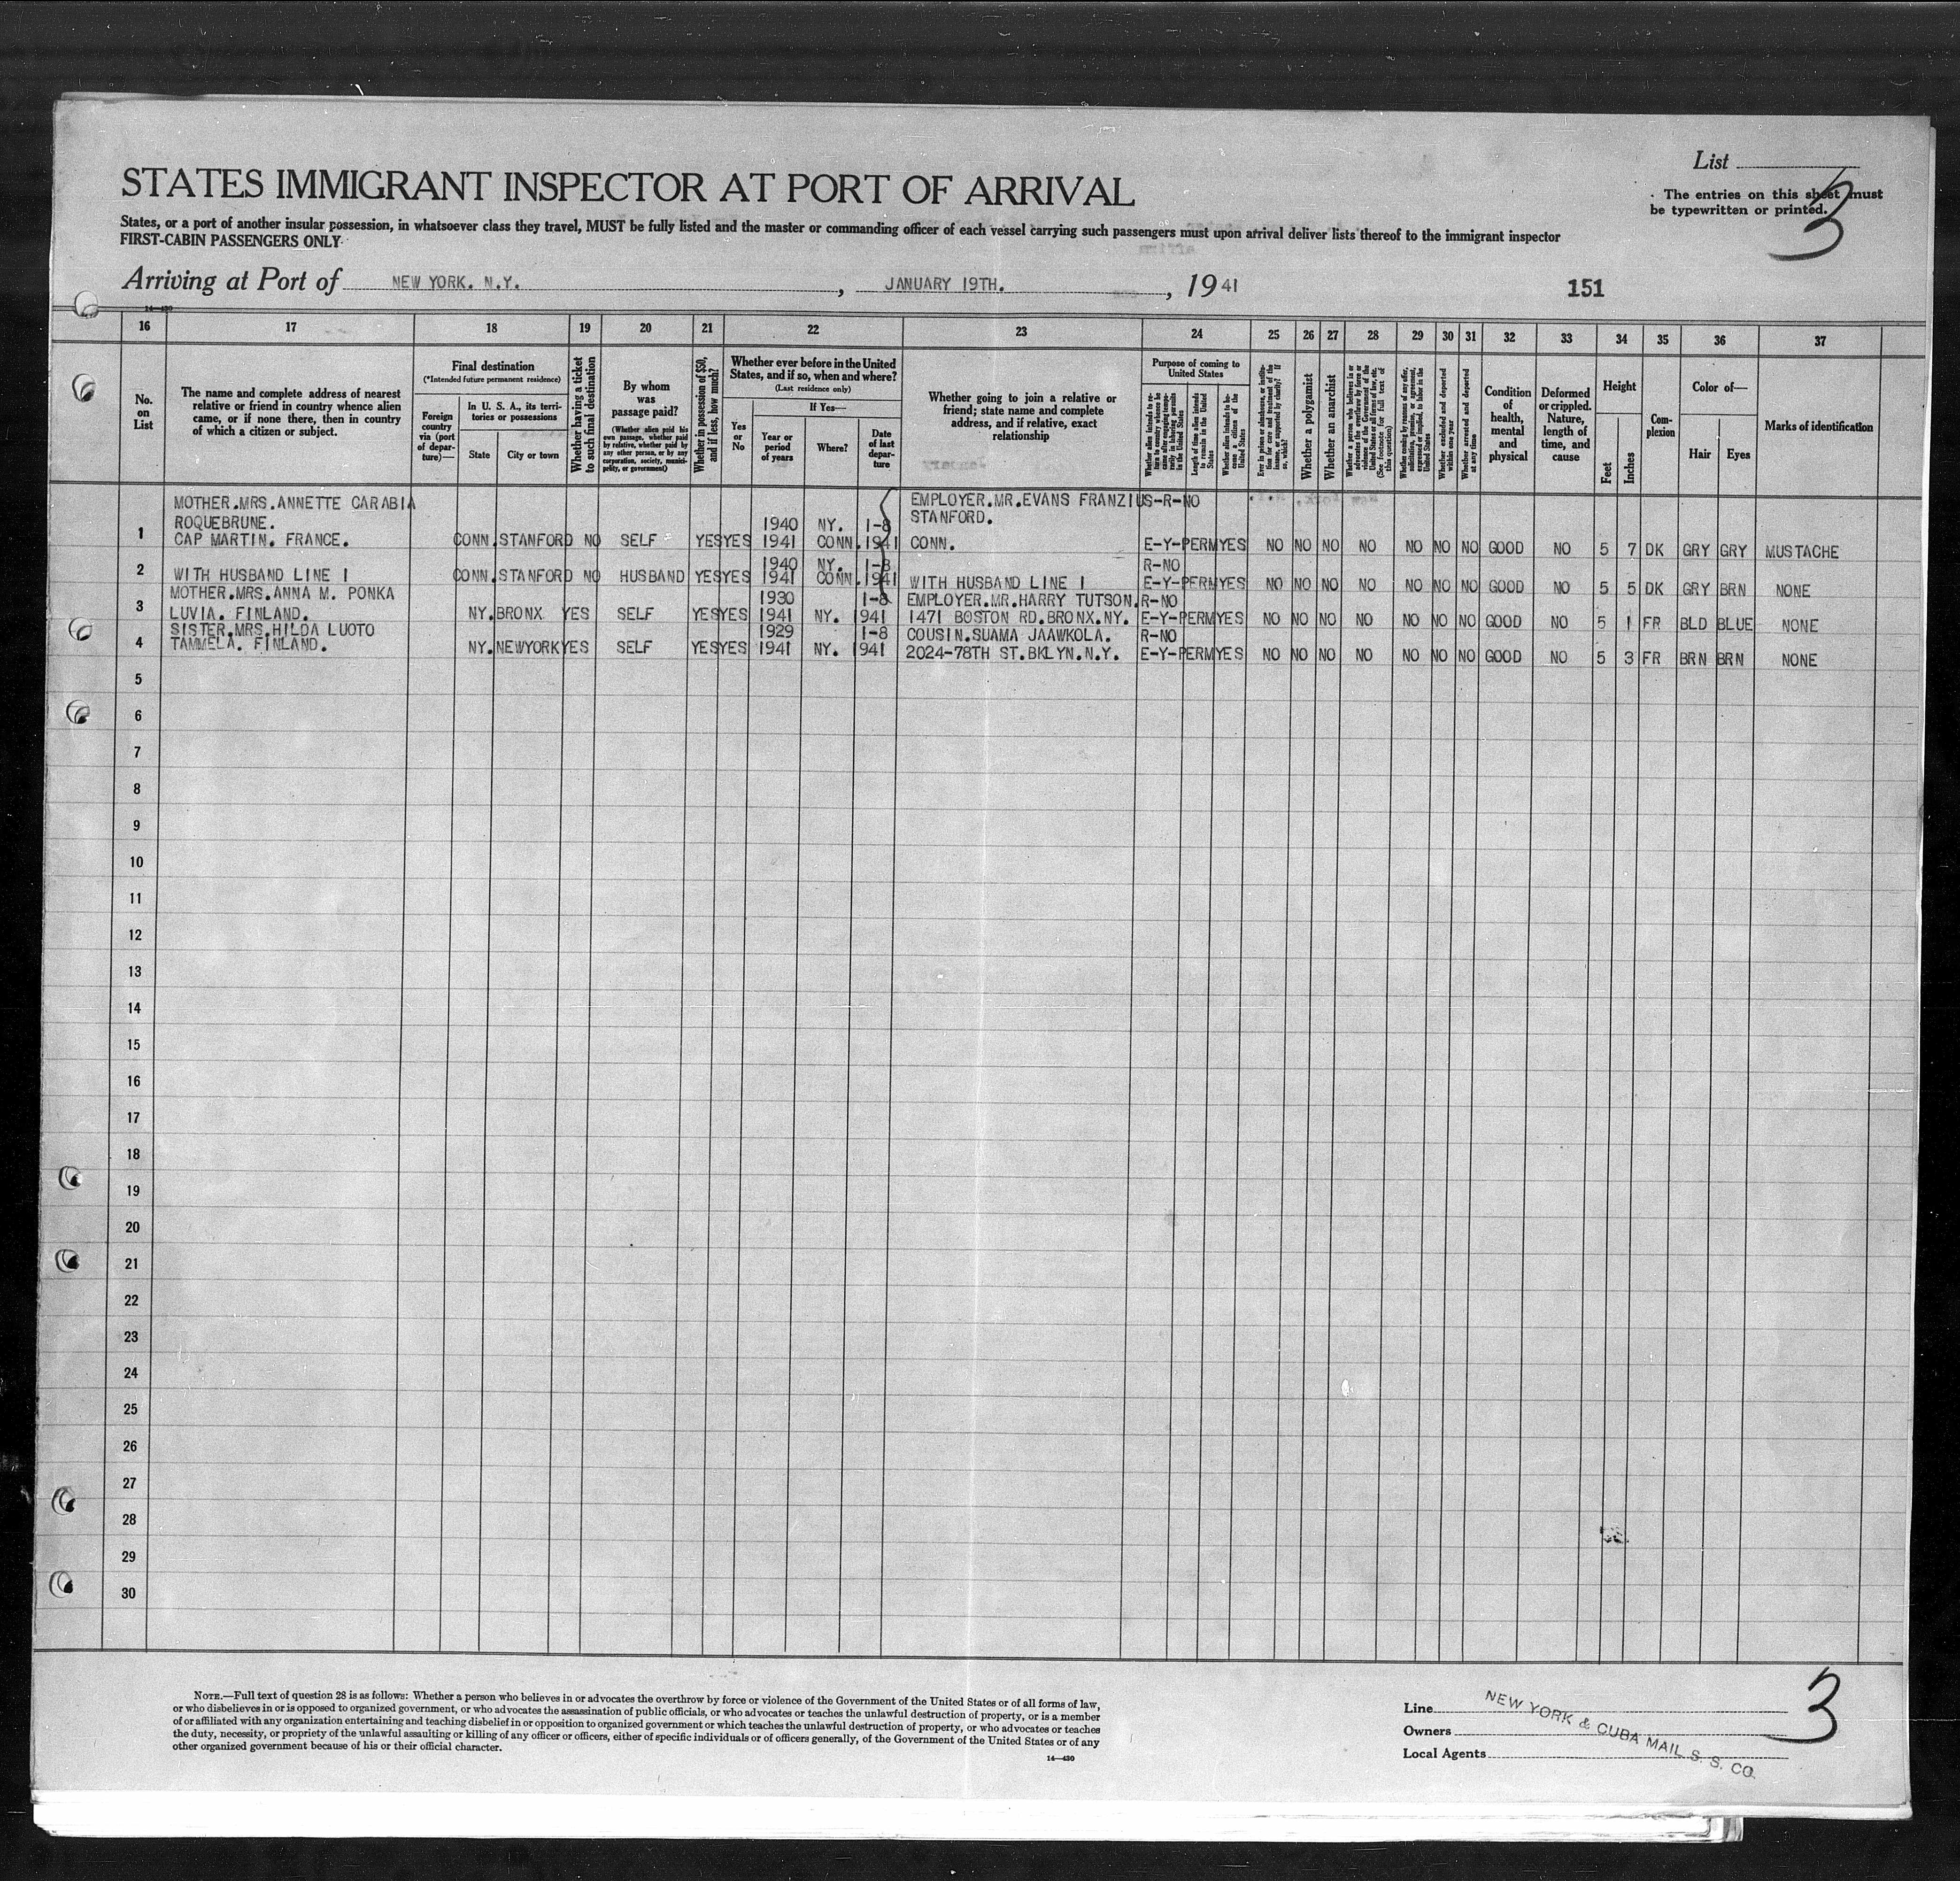 List
3
. The entries on this sheet must
be typewritten or printed.
STATES IMMIGRANT INSPECTOR AT PORT OF ARRIVAL
States, or a port of another insular possession, in whatsoever class they travel, MUST be fully listed and the master or commanding officer of each vessel carrying such passengers must upon arrival deliver lists thereof to the immigrant inspector
FIRST-CABIN PASSENGERS ONLY
Arriving at Port of NEW YORK. N.Y. , JANUARY 19TH. , 1941
151
14—430
16 17 18 19 20 21 22 23 24 25 26 27 28 29 30 31 32 33 34 35 36 37
No. on List
The name and complete address of nearest
relative or friend in country whence alien
came, or if none there, then in country
of which a citizen or subject.
Final destination
(*Intended future permanent residence)
Foreign country via (port of departure)—
In U. S. A., its territories or possessions
State
City or town
Whether having a ticket to such final destination
By whom was passage paid?
(Whether alien paid his own passage, whether paid by relative, whether paid by any other person, or by any corporation, society, municipality, or government)
Whether in possession of $50, and if less, how much?
Whether ever before in the United
States, and if so, when and where?
(Last residence only)
Yes or No
If Yes—
Year or period of years
Where?
Date of last departure
Whether going to join a relative or
friend; state name and complete
address, and if relative, exact
relationship
Purpose of coming to United States
Length of time alien intends to remain in the United States
Whether alien intends to become a citizen of the United States
Whether a polygamist
Whether an anarchist
Whether excluded and deported within one year
Whether arrested and deported at any time
Condition of health, mental and physical
Deformed or crippled. Nature, length of time, and cause
Height
Feet
Inches
Complexion
Color of—
Hair
Eyes
Marks of identification
MOTHER.MRS.ANNETTE CARABIA EMPLOYER.MR.EVANS FRANZIUS-R-NO
ROQUEBRUNE. 1940 NY. 1-8 STANFORD.
1 CAP MARTIN. FRANCE. CONN.STANFORD NO SELF YES YES 1941 CONN. 1941 CONN. E-Y-PERM YES NO NO NO NO NO NO NO GOOD NO 5 7 DK GRY GRY MUSTACHE
1940 NY. 1-8 R-NO
2 WITH HUSBAND LINE 1 CONN.STANFORD NO HUSBAND YES YES 1941 CONN. 1941 WITH HUSBAND LINE 1 E-Y-PERM YES NO NO NO NO NO NO NO GOOD NO 5 5 DK GRY BRN NONE
MOTHER.MRS.ANNA M. PONKA 1930 1-8 EMPLOYER.MR.HARRY TUTSON. R-NO
3 LUVIA. FINLAND. NY.BRONX YES SELF YES YES 1941 NY. 1941 1471 BOSTON RD.BRONX.NY. E-Y-PERM YES NO NO NO NO NO NO NO GOOD NO 5 1 FR BLD BLUE NONE
SISTER.MRS.HILDA LUOTO 1929 1-8 COUSIN.SUAMA JAAWKOLA. R-NO
4 TAMMELA. FINLAND. NY.NEWYORK YES SELF YES YES 1941 NY. 1941 2024-78TH ST.BKLYN.N.Y. E-Y-PERM YES NO NO NO NO NO NO NO GOOD NO 5 3 FR BRN BRN NONE
5
6
7
8
9
10
11
12
13
14
15
16
17
18
19
20
21
22
23
24
25
26
27
28
29
30
NOTE.—Full text of question 28 is as follows: Whether a person who believes in or advocates the overthrow by force or violence of the Government of the United States or of all forms of law,
or who disbelieves in or is opposed to organized government, or who advocates the assassination of public officials, or who advocates or teaches the unlawful destruction of property, or is a member
of or affiliated with any organization entertaining and teaching disbelief in or opposition to organized government or which teaches the unlawful destruction of property, or who advocates or teaches
the duty, necessity, or propriety of the unlawful assaulting or killing of any officer or officers, either of specific individuals or of officers generally, of the Government of the United States or of any
other organized government because of his or their official character.
14—430
Line
Owners
Local Agents
NEW YORK & CUBA MAIL S. S. CO.
3